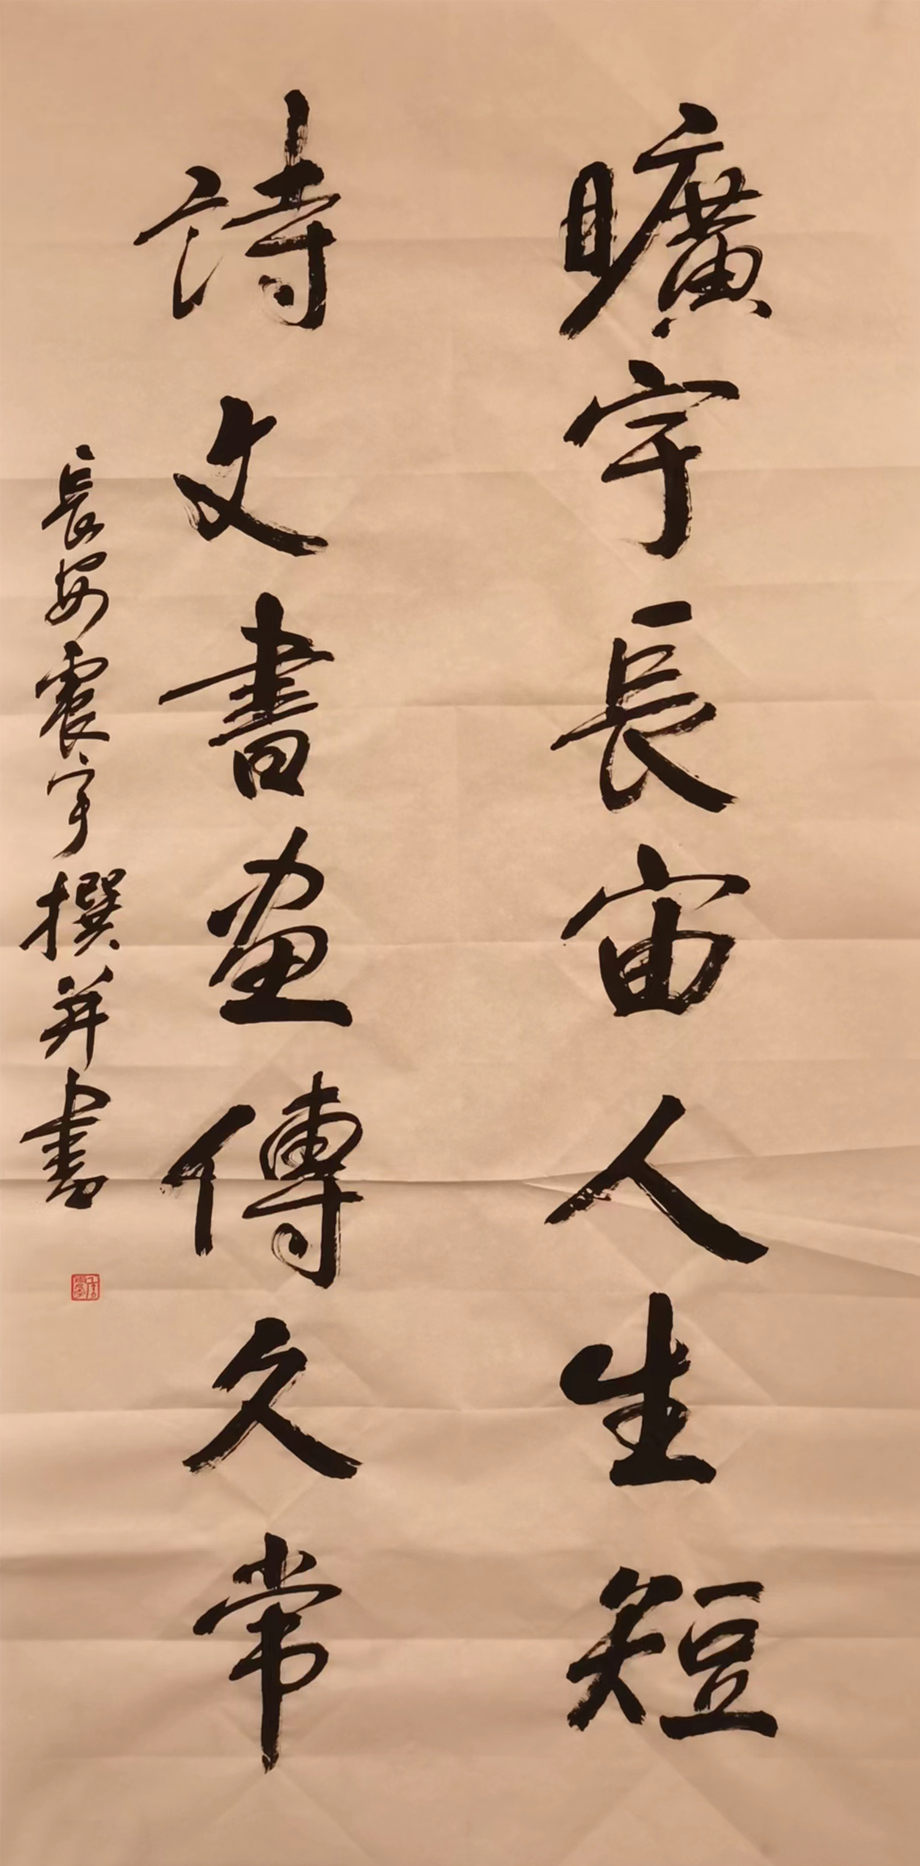 曠宇長宙人生短
詩文書畫傳久常
長安震宇撰并書